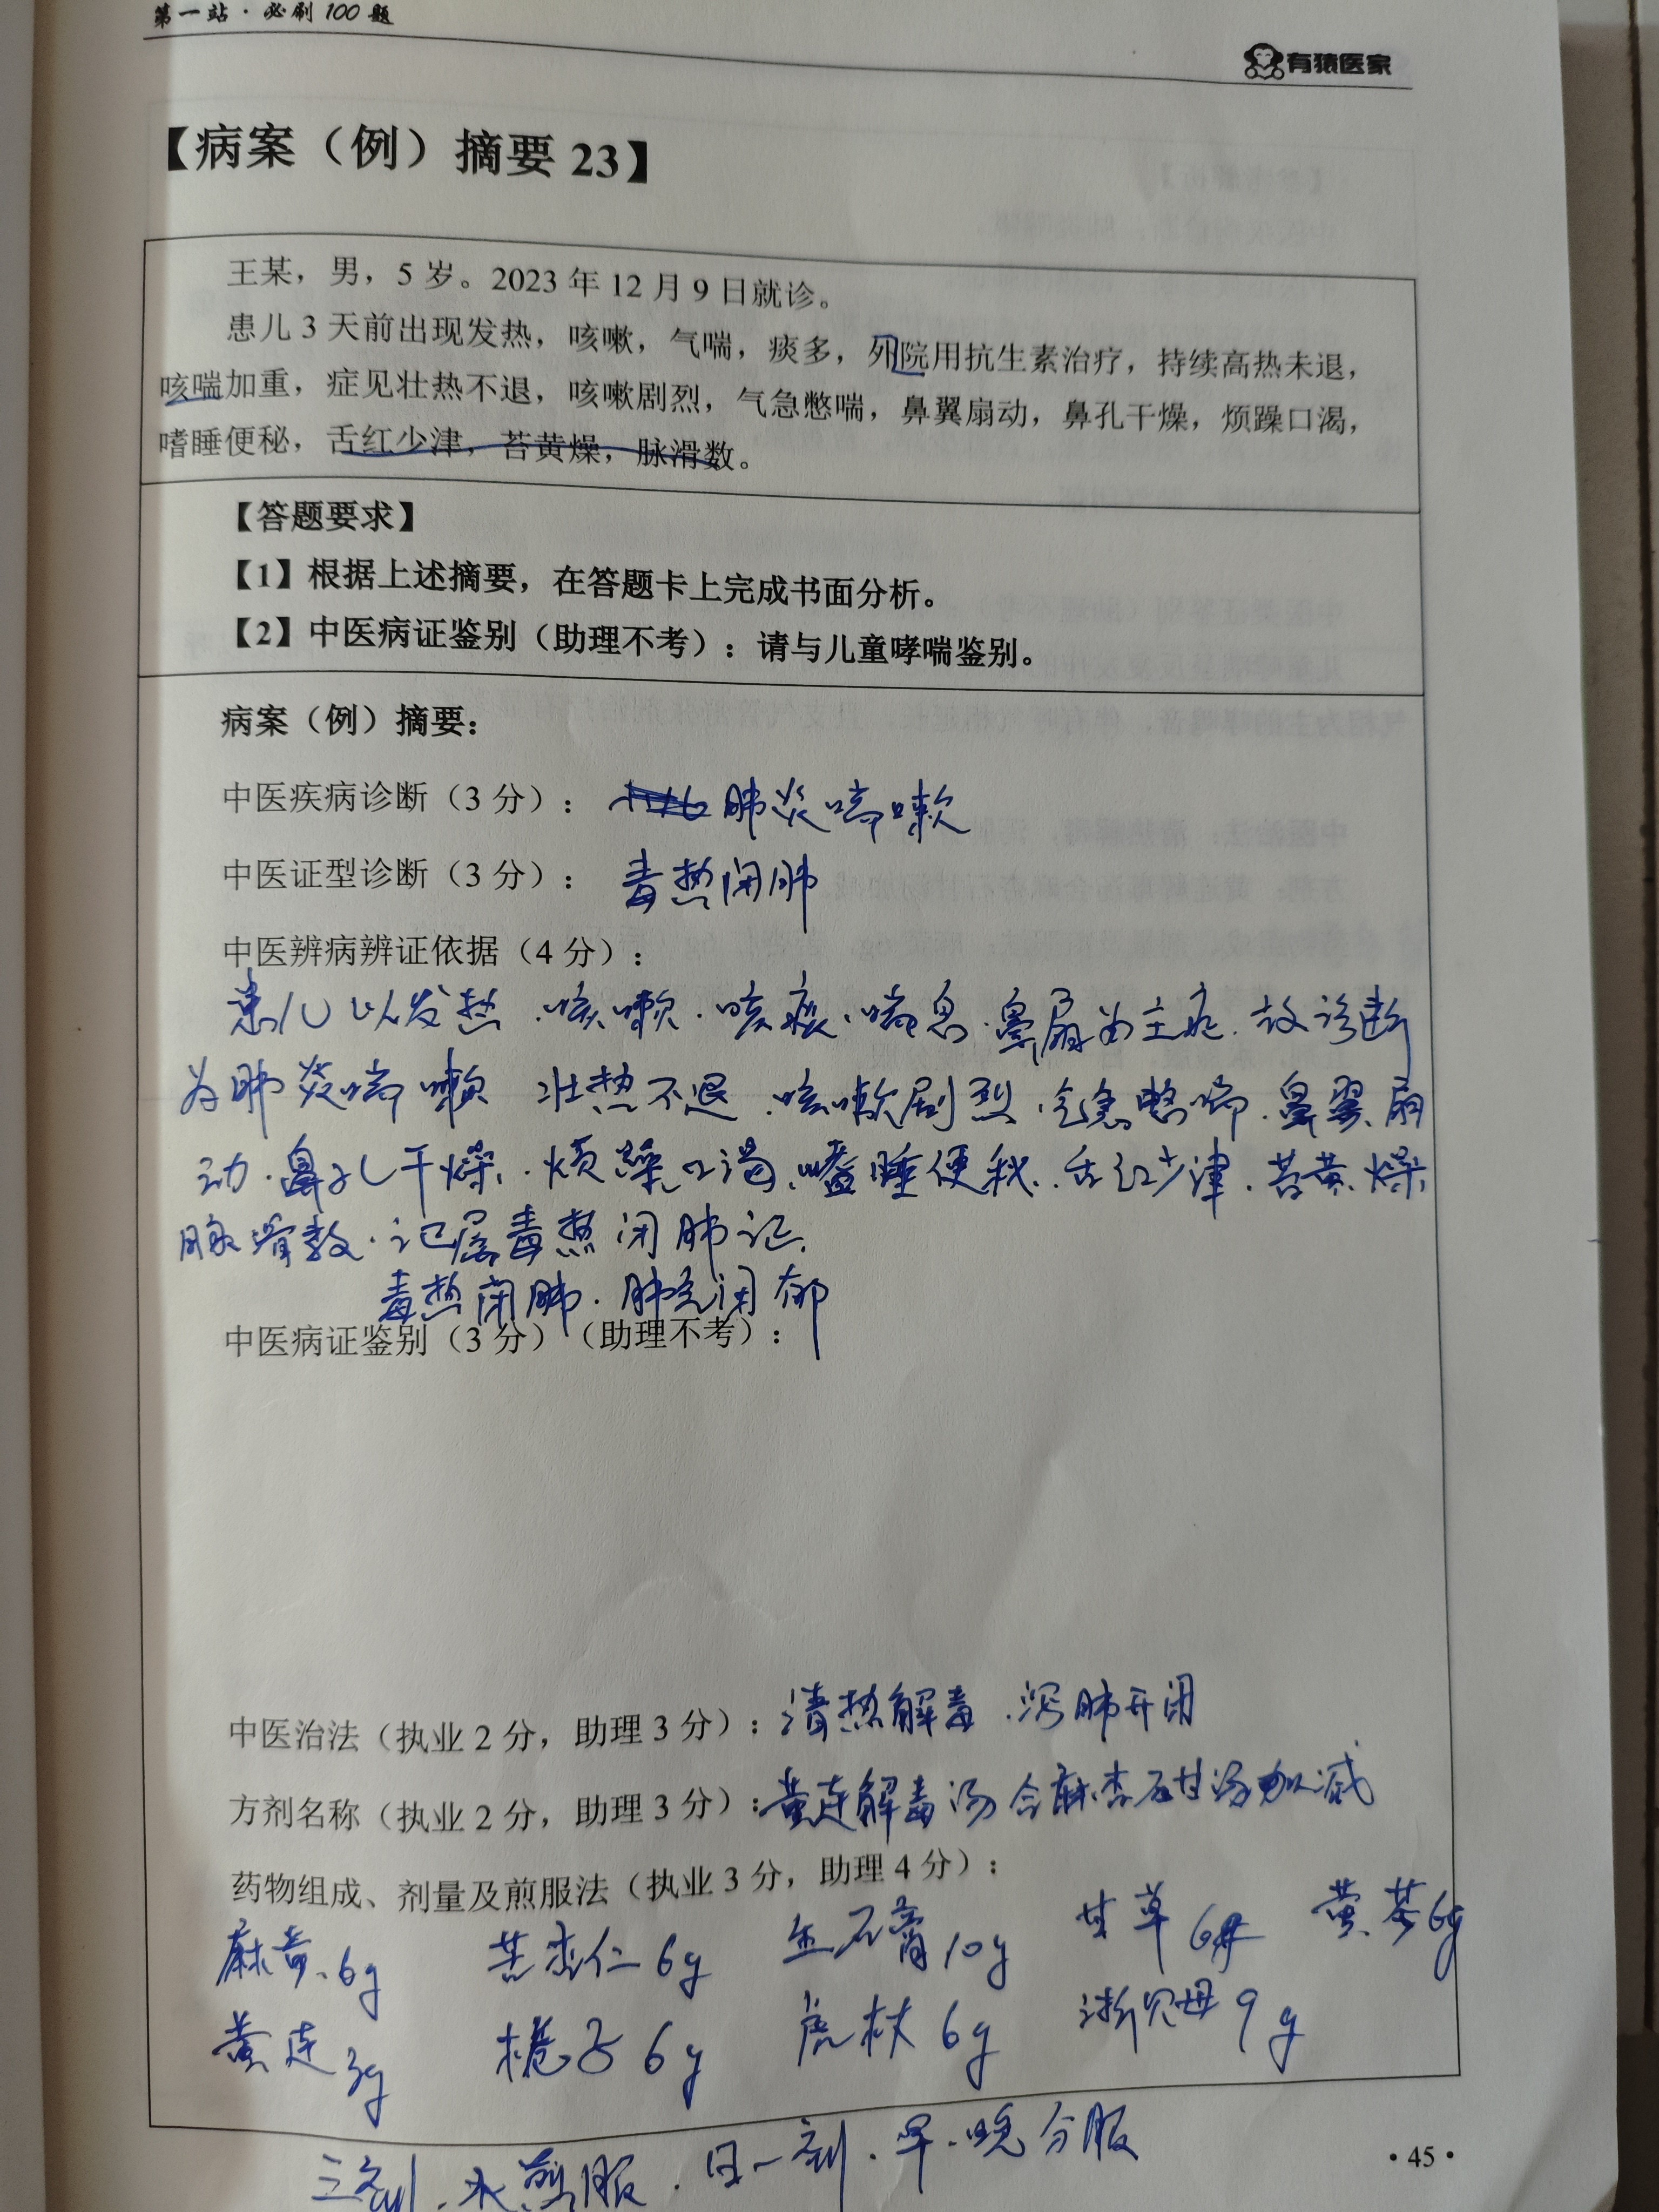 第一站·必刷100题
有猿医家
【病案（例）摘要 23】
王某，男，5岁。2023年12月9日就诊。
患儿3天前出现发热，咳嗽，气喘，痰多，外院用抗生素治疗，持续高热未退，
咳喘加重，症见壮热不退，咳嗽剧烈，气急憋喘，鼻翼扇动，鼻孔干燥，烦躁口渴，
嗜睡便秘，舌红少津，苔黄燥，脉滑数。
【答题要求】
【1】根据上述摘要，在答题卡上完成书面分析。
【2】中医病证鉴别（助理不考）：请与儿童哮喘鉴别。
病案（例）摘要：
中医疾病诊断（3分）： 肺炎喘嗽
中医证型诊断（3分）： 毒热闭肺
中医辨病辨证依据（4分）：
患儿以发热、咳嗽、咳痰、喘息、鼻扇为主症，故诊断
为肺炎喘嗽 壮热不退、咳嗽剧烈、气急憋喘、鼻翼扇
动、鼻孔干燥、烦躁口渴、嗜睡便秘、舌红少津、苔黄燥
脉滑数、证属毒热闭肺证。
毒热闭肺、肺气闭郁
中医病证鉴别（3分）（助理不考）：
中医治法（执业2分，助理3分）：清热解毒、泻肺开闭
方剂名称（执业2分，助理3分）：黄连解毒汤合麻杏石甘汤加减
药物组成、剂量及煎服法（执业3分，助理4分）：
麻黄6g 苦杏仁6g 生石膏10g 甘草6 黄芩6g
黄连3g 栀子6g 虎杖6g 浙贝母9g
三剂、水煎服、日一剂、早晚分服
·45·